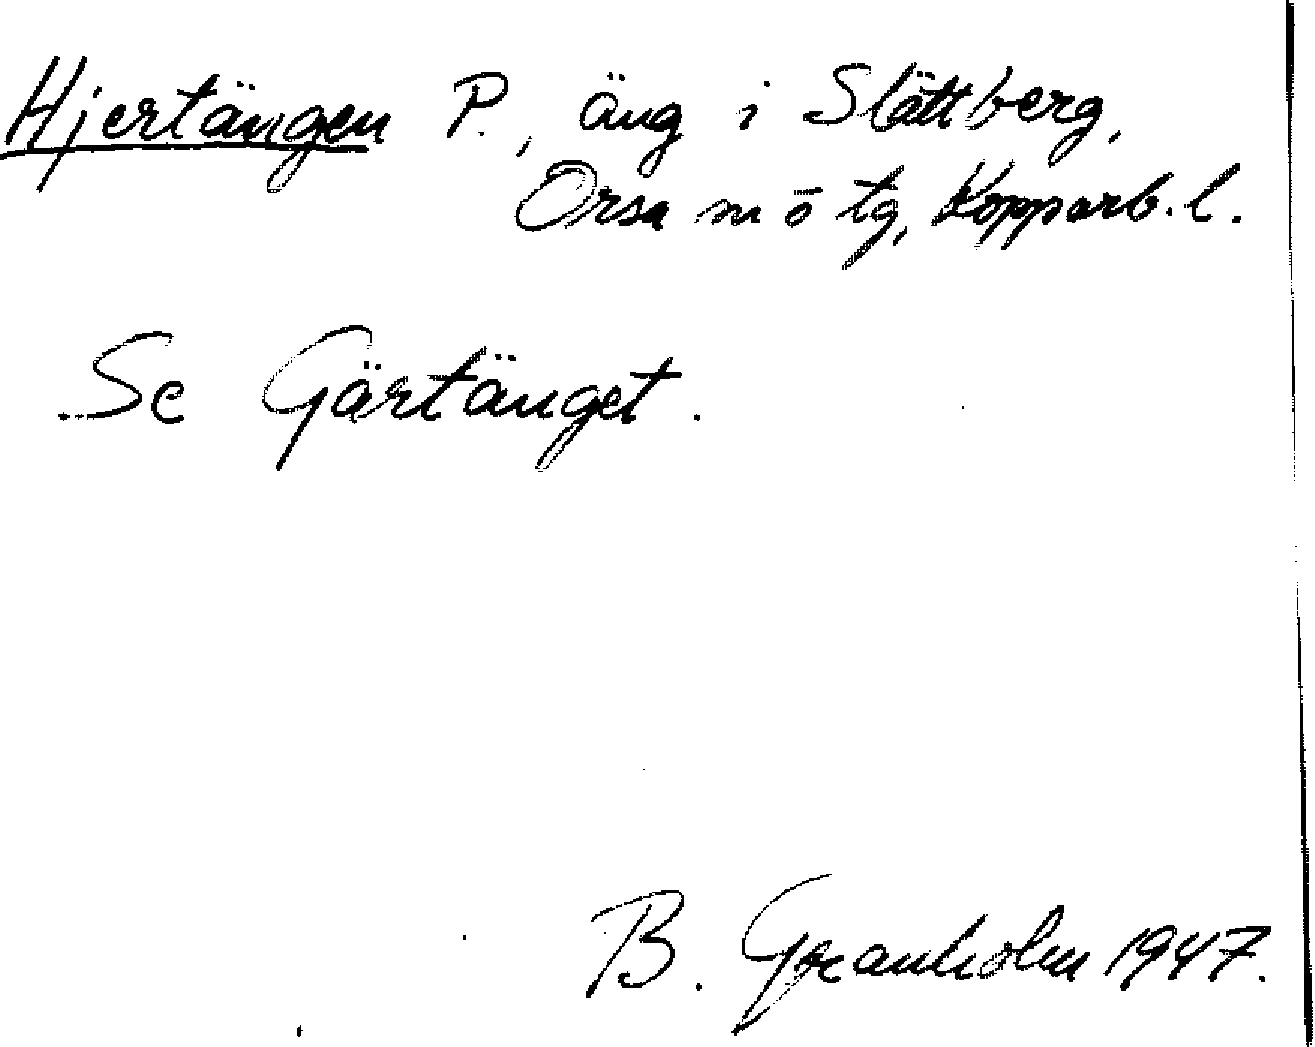 Hjertängen P., äng i Slättberg,
Orsa m ö tg, Kopparb. l.
Se Gärtänget.
B. Granholm 1947.